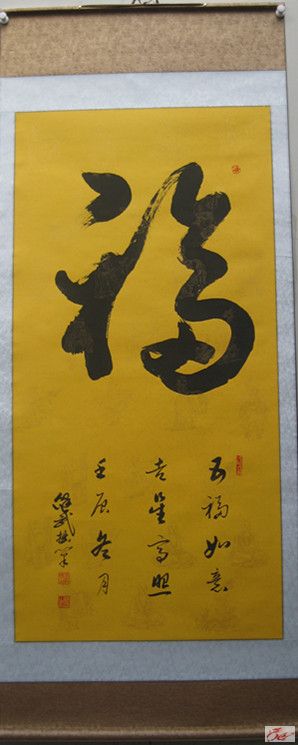 福
五福如意
吉星高照
壬辰冬月